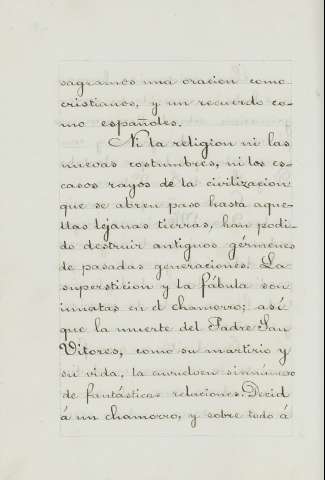 sagramos una oracion como
cristianos, y un recuerdo co-
mo españoles.
Ni la religion ni las
nuevas costumbres, ni los es-
casos rayos de la civilizacion
que se abren paso hasta aque-
llas lejanas tierras, han podi-
do destruir antiguos gérmenes
de pasadas generaciones. La
supersticion y la fábula son
innatas en el chamorro; así
que la muerte del Padre San
Vitores, como su martirio y
su vida, la envuelven sinnúmero
de fantásticas relaciones. Decid
á un chamorro, y sobre todo á